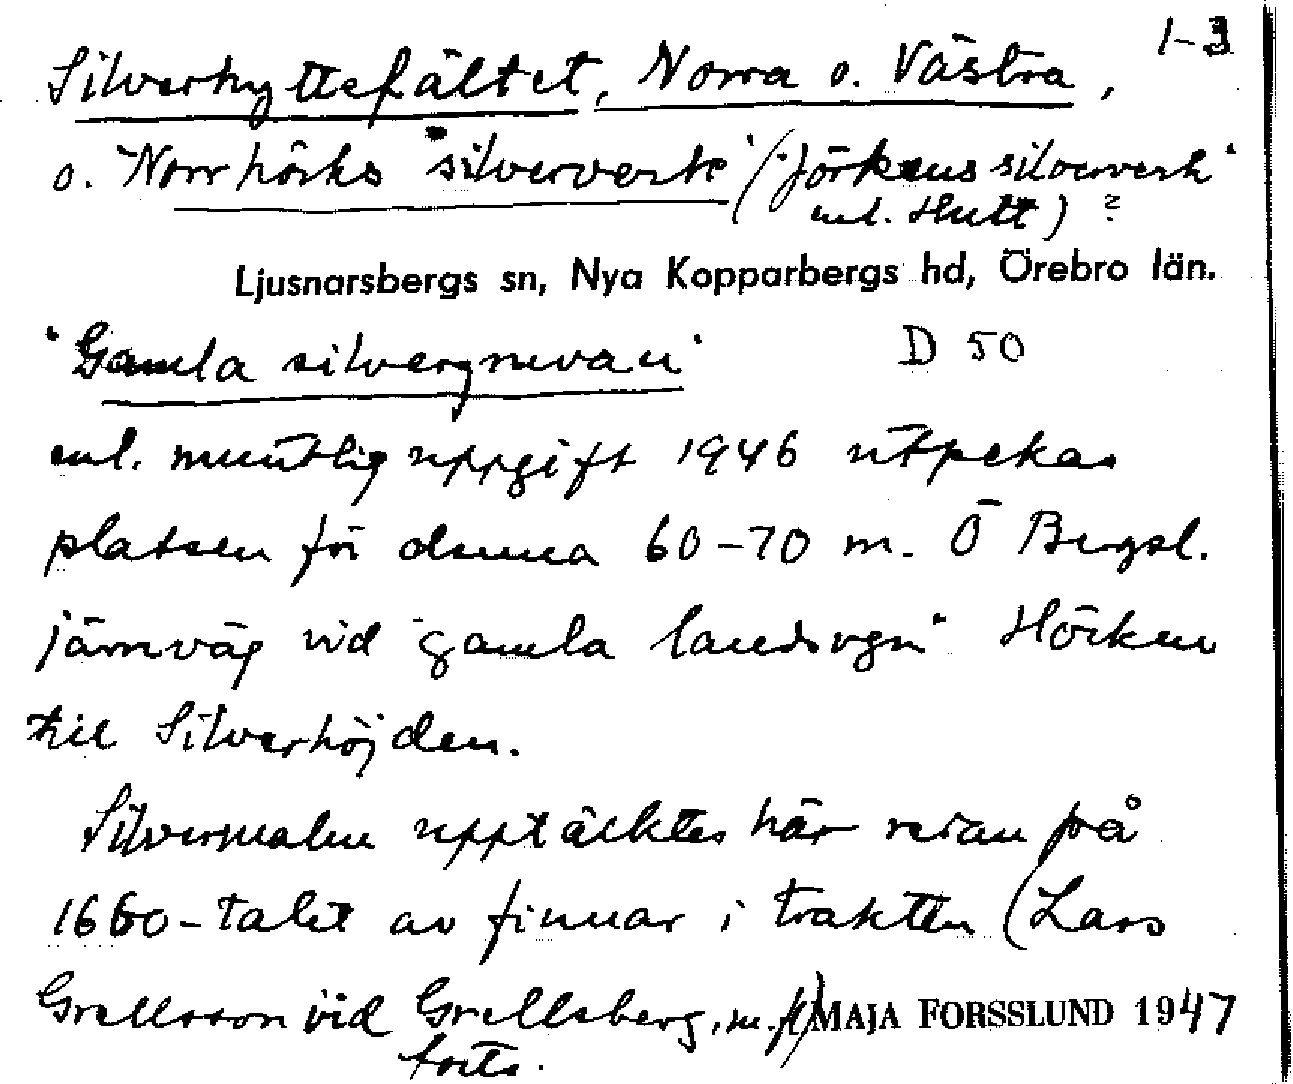 1-3
Silverhyttefältet, Norra o. Västra,
o. "Norrhörks silververk" ("Hörkens silververk"
enl. Hult) ?
Ljusnarsbergs sn, Nya Kopparbergs hd, Örebro län.
"Gamla silvergruvan" D 50
enl. muntlig uppgift 1946 utpekas
platsen för denna 60-70 m. Ö Bergsl.
järnväg vid "gamla landsvgn" Hörken
till Silverhöjden.
Silvermalm upptäcktes här redan på
1660-talet av finnar i trakten (Lars
Grellsson vid Grellsberg, m.fl) MAJA FORSSLUND 1947
forts.